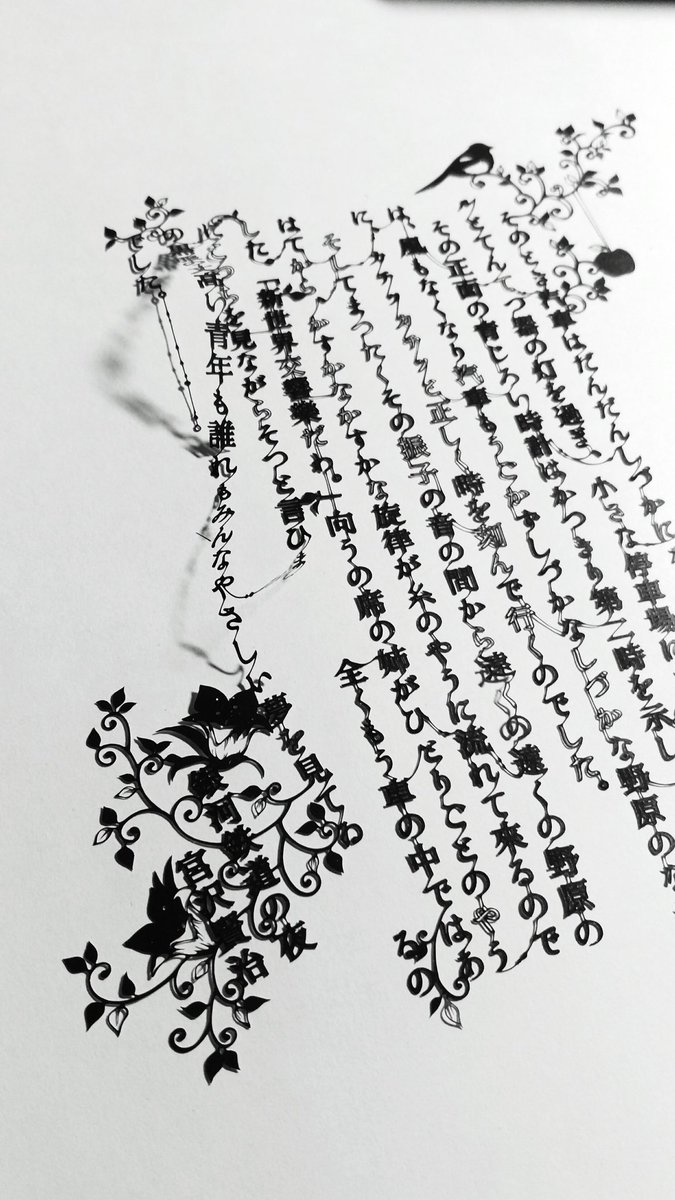 そのとき汽車はだんだんしづかにな
とてんてつ器の灯を過ぎ、小さな停車場に
その正面の青じろい時計はかつきり第二時を示し
は、風もなくなり汽車もうごかずしづかなしづかな野原のな
にカクカクカクカクと正しく時を刻んで行くのでした。
そしてまつたくその振子の音の間から遠くの遠くの野原の
はてからかすかなかすかな旋律が糸のやうに流れて来るので
した。「新世界交響楽だわ。」向うの席の姉がひとりごとのやう
にこつちを見ながらそつと言ひま 全くもう車の中ではあ
の 高い青年も誰れもみんなやさしい夢を見てゐ
るの
でした。
銀河鉄道の夜
宮沢賢治